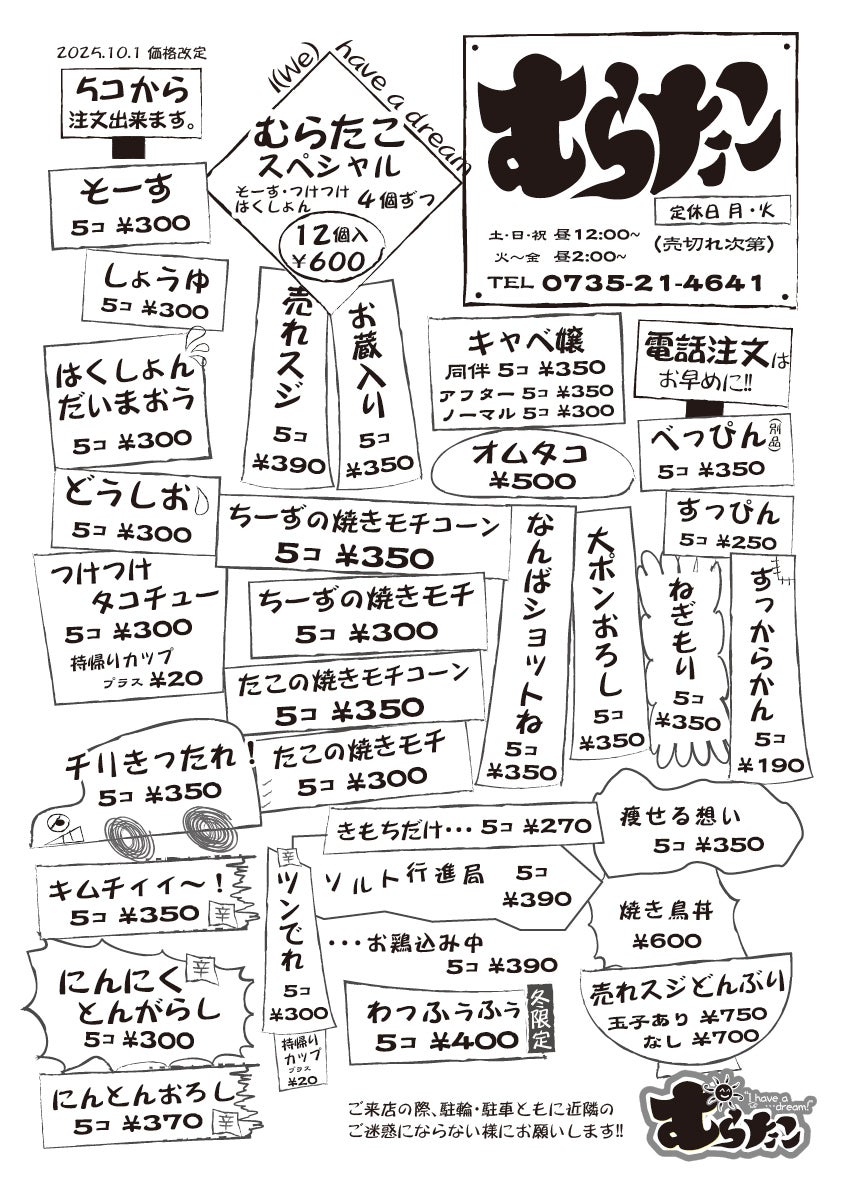 2025.10.1 価格改定
5コから
注文出来ます。
I(We) have a dream
むらたこ
スペシャル
そーす・つけつけ
はくしょん
4個ずつ
12個入
¥600
むらたこ
定休日 月・火
土・日・祝 昼12:00~
火〜金 昼2:00~
(売切れ次第)
TEL 0735-21-4641
そーす
5コ ¥300
しょうゆ
5コ ¥300
はくしょん
だいまおう
5コ ¥300
どうしお
5コ ¥300
つけつけ
タコチュー
5コ ¥300
持帰りカップ
プラス ¥20
売れスジ
5コ
¥390
お蔵入り
5コ
¥350
キャベ嬢
同伴 5コ ¥350
アフター 5コ ¥350
ノーマル 5コ ¥300
オムタコ
¥500
電話注文は
お早めに!!
べっぴん(別品)
5コ ¥350
すっぴん
5コ ¥250
ちーずの焼きモチコーン
5コ ¥350
ちーずの焼きモチ
5コ ¥300
たこの焼きモチコーン
5コ ¥350
たこの焼きモチ
5コ ¥300
なんばショットね
5コ
¥350
大ポンおろし
5コ
¥350
ねぎもり
5コ
¥350
すっからかん
5コ
¥190
チリきったれ!
5コ ¥350
キムチイィ〜!
5コ ¥350 辛
にんにく 辛
とんがらし
5コ ¥300
にんとんおろし
5コ ¥370 辛
辛
ツンでれ
5コ
¥300
持帰り
カップ
プラス
¥20
きもちだけ… 5コ ¥270
ソルト行進局 5コ
¥390
…お鶏込み中
5コ ¥390
わっふぅふぅ
5コ ¥400
冬限定
痩せる想い
5コ ¥350
焼き鳥丼
¥600
売れスジどんぶり
玉子あり ¥750
なし ¥700
ご来店の際、駐輪・駐車ともに近隣の
ご迷惑にならない様にお願いします!!
"I have a dream!"
むらたこ